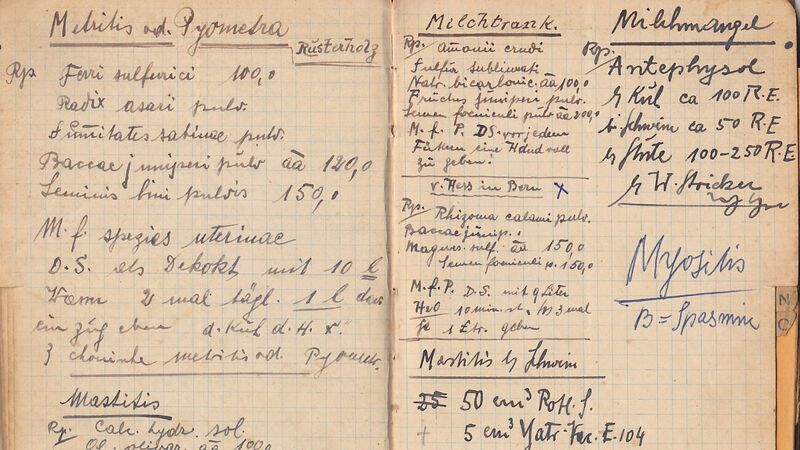 Metritis od. Pyometra
Rusterholz
Rp Ferri sulfurici 100,0
Radix asari pulv.
Summitates sabinae pulv.
Baccae juniperi pulv āā 120,0
Seminis lini pulvis 150,0
M. f. spezies uterinae
D.S. als Dekokt mit 10 l
Warm 2 mal tägl. 1 l
d. Kuh d. H.
metritis od. Pyometr.
Mastitis
Rp. Calc. hydr. sol.
Ol. olivar. āā 100,0
Milchtrank.
Rp. Amonii crudi
Sulfur sublimati
Natr. bicarbonic. āā 100,0
Fructus juniperi pulv.
Semen foeniculi pulv āā 200,0
M. f. P. DS. vor jedem
Füttern eine Hand voll
zu geben!
v. Hess in Bern x
Rp. Rhizoma calami pulv.
Baccae junip.
Magnes. sulf. āā 150,0
Semen foeniculi p. 150,0
M. f. P. D.S. mit 9 Liter
H2O 10 min. 3 mal
je 1 Ltr. geben
Mastitis b/ Schwein
25 50 cm³ Rotl. S.
+ 5 cm³ Yatr. Vac. E. 104
Milchmangel
Rp. Antephysol
b/ Kuh ca 100 R.E.
b/ Schwein ca 50 R.E
b/ Stute 100-250 R.E
b/ W. Stricker
Myositis
B = Spasmin